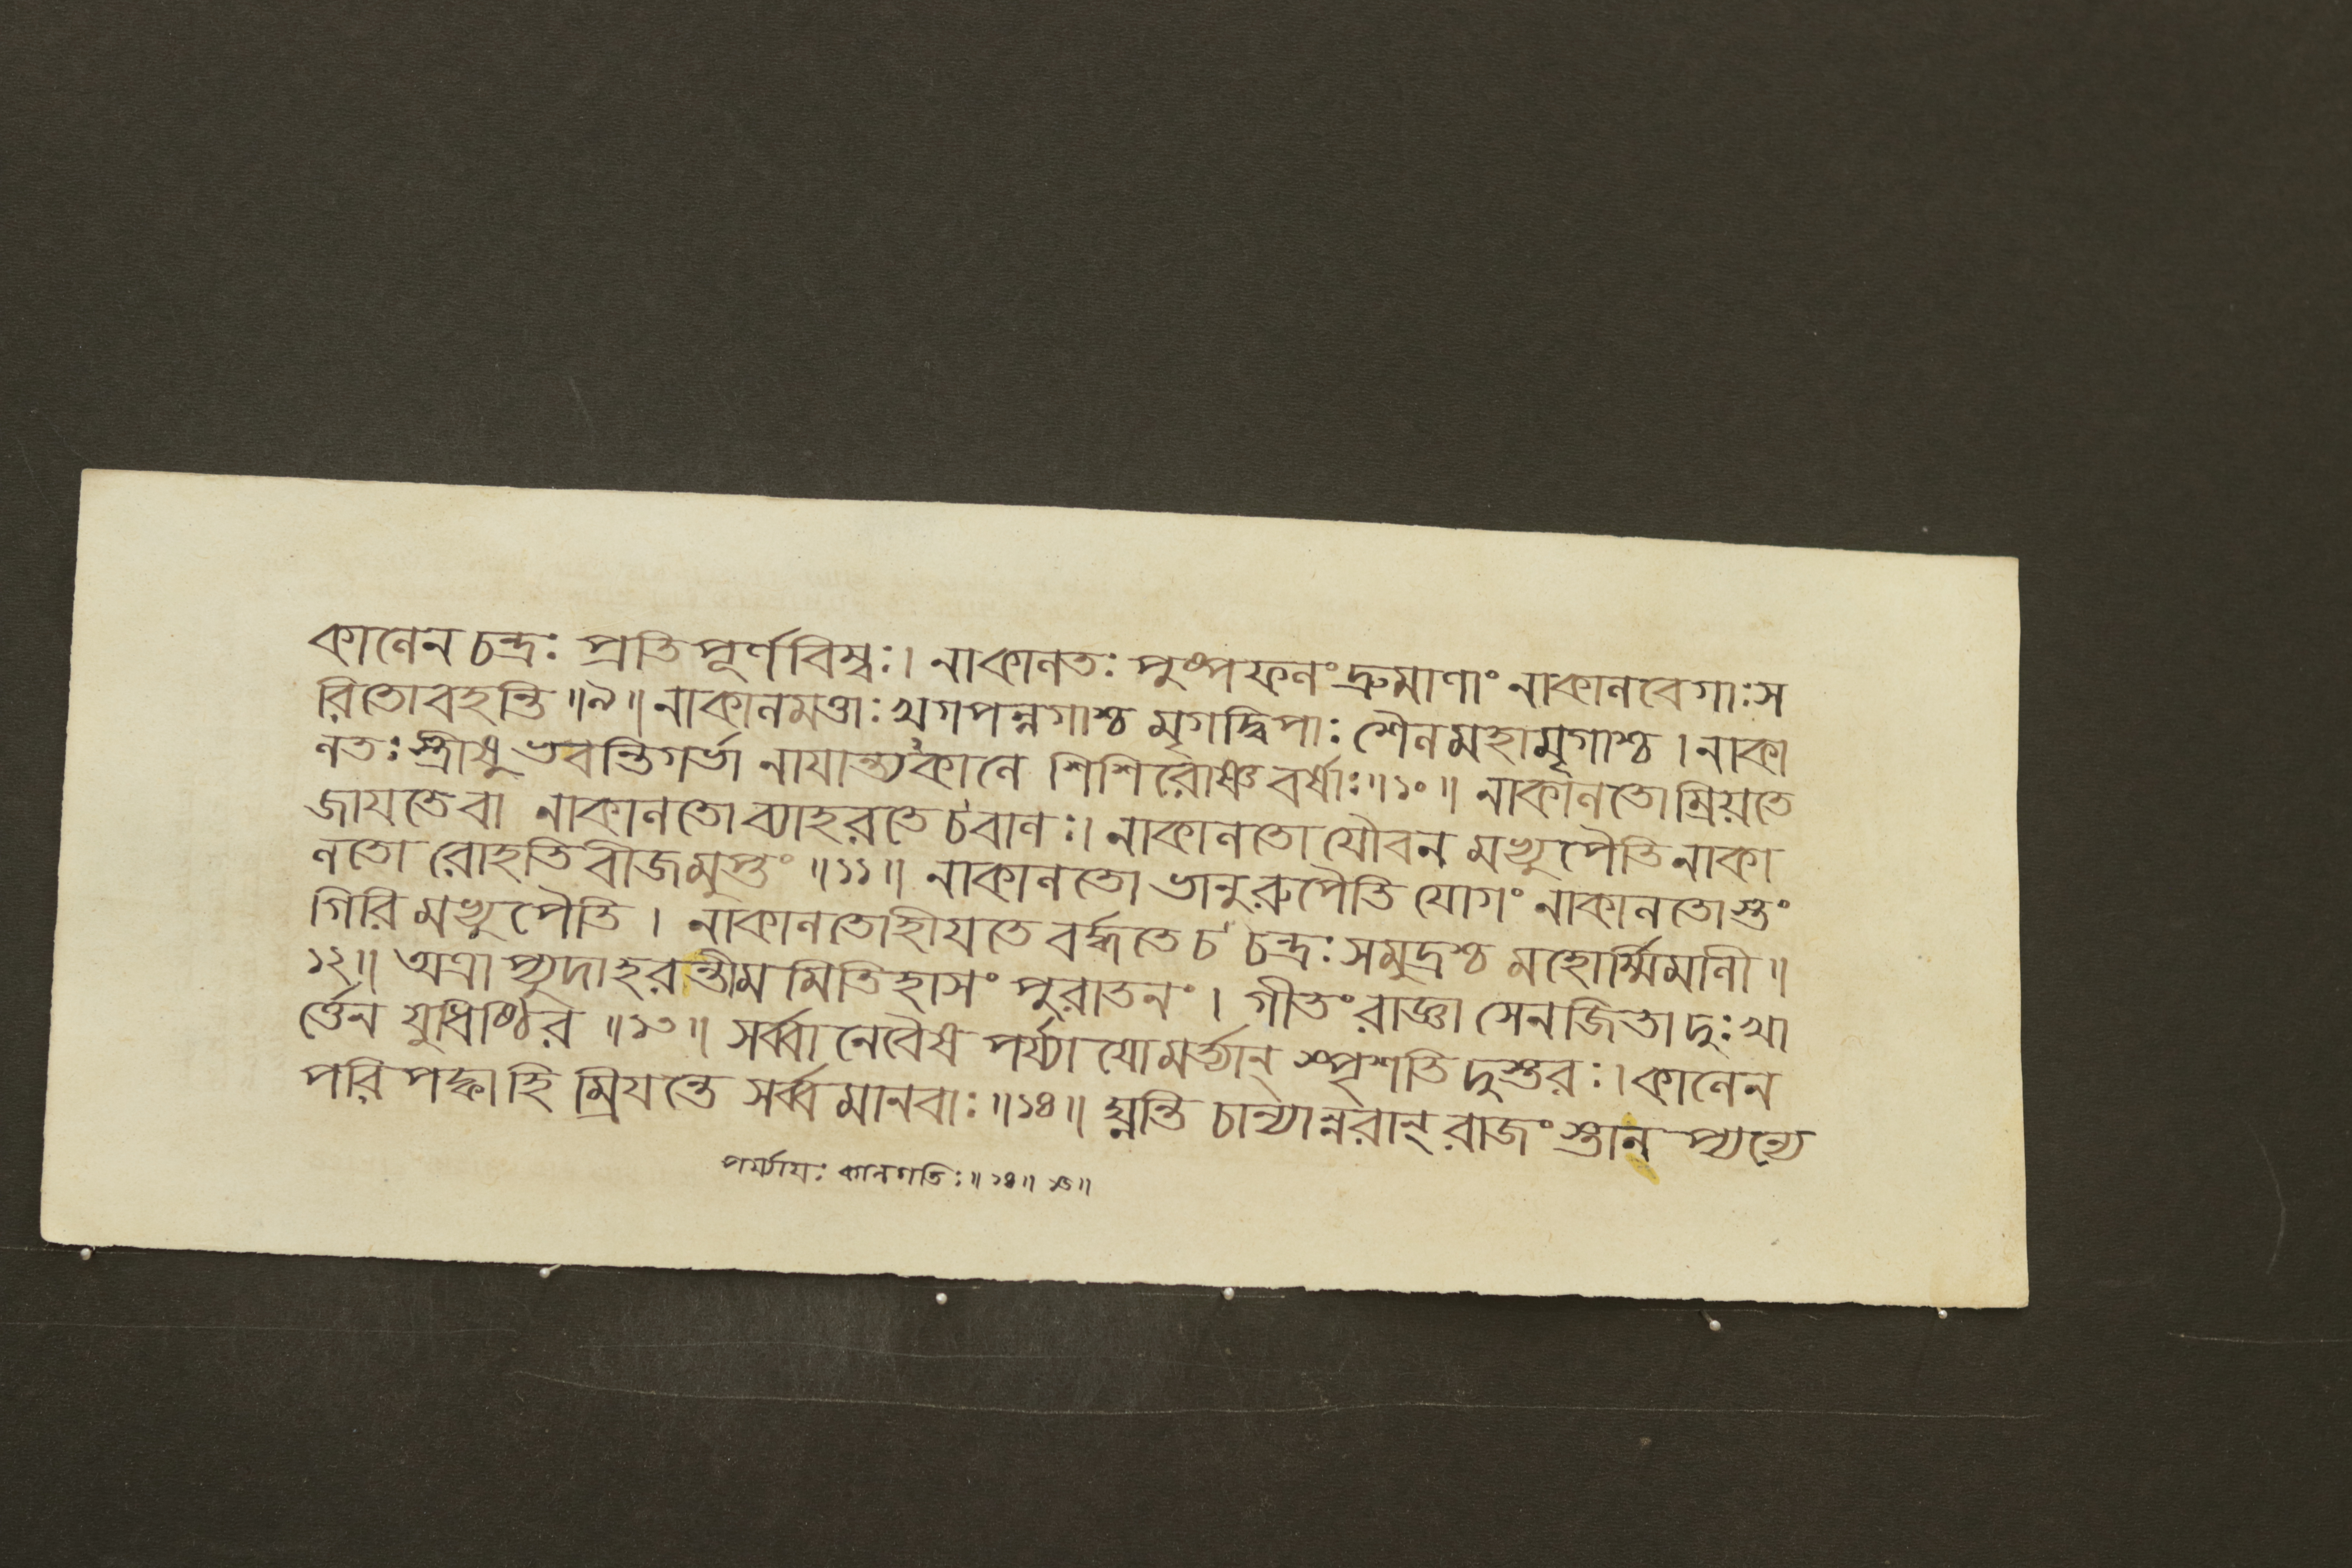 কালেন চন্দ্রঃ প্রতিপূর্ণবিম্বঃ। নাকালতঃ পুষ্পফলং দ্রুমাণাং নাকালবেগাঃ স
রিতো বহন্তি ॥৯॥ নাকালমত্তাঃ খগপন্নগাশ্চ মৃগদ্বিপাঃ শৈলমহামৃগাশ্চ । নাকা
লতঃ স্ত্রীষু ভবন্তি গর্ভা নাযান্ত্যকালে শিশিরোষ্ণবর্ষাঃ ॥১০॥ নাকালতো ম্রিয়তে
জাযতে বা নাকালতো ব্যাহরতে চ বালঃ। নাকালতো যৌবনমভ্যুপৈতি নাকা
লতো রোহতি বীজমুপ্তং ॥১১॥ নাকালতো ভানুরুপৈতি যোগং নাকালতোস্তং
গিরিমভ্যুপৈতি । নাকালতো হীযতে বর্দ্ধতে চ চন্দ্রঃ সমুদ্রশ্চ মহোর্ম্মিমালী ॥
১২॥ অত্রাপ্যুদাহরন্তীমমিতিহাসং পুরাতনং । গীতং রাজ্ঞা সেনজিতা দুঃখা
র্ত্তেন যুধিষ্ঠির ॥১৩॥ সর্ব্বানেবৈষ পর্য্যাযো মর্ত্ত্যান্ স্পৃশতি দুস্তরঃ। কালেন
পরিপক্কা হি ম্রিযন্তে সর্ব্বমানবাঃ ॥১৪॥ ঘ্নন্তি চান্যান্নরান্ রাজংস্তান্ প্যন্যে
পর্য্যাযঃ কালগতিঃ ॥১৪॥ ১৫॥